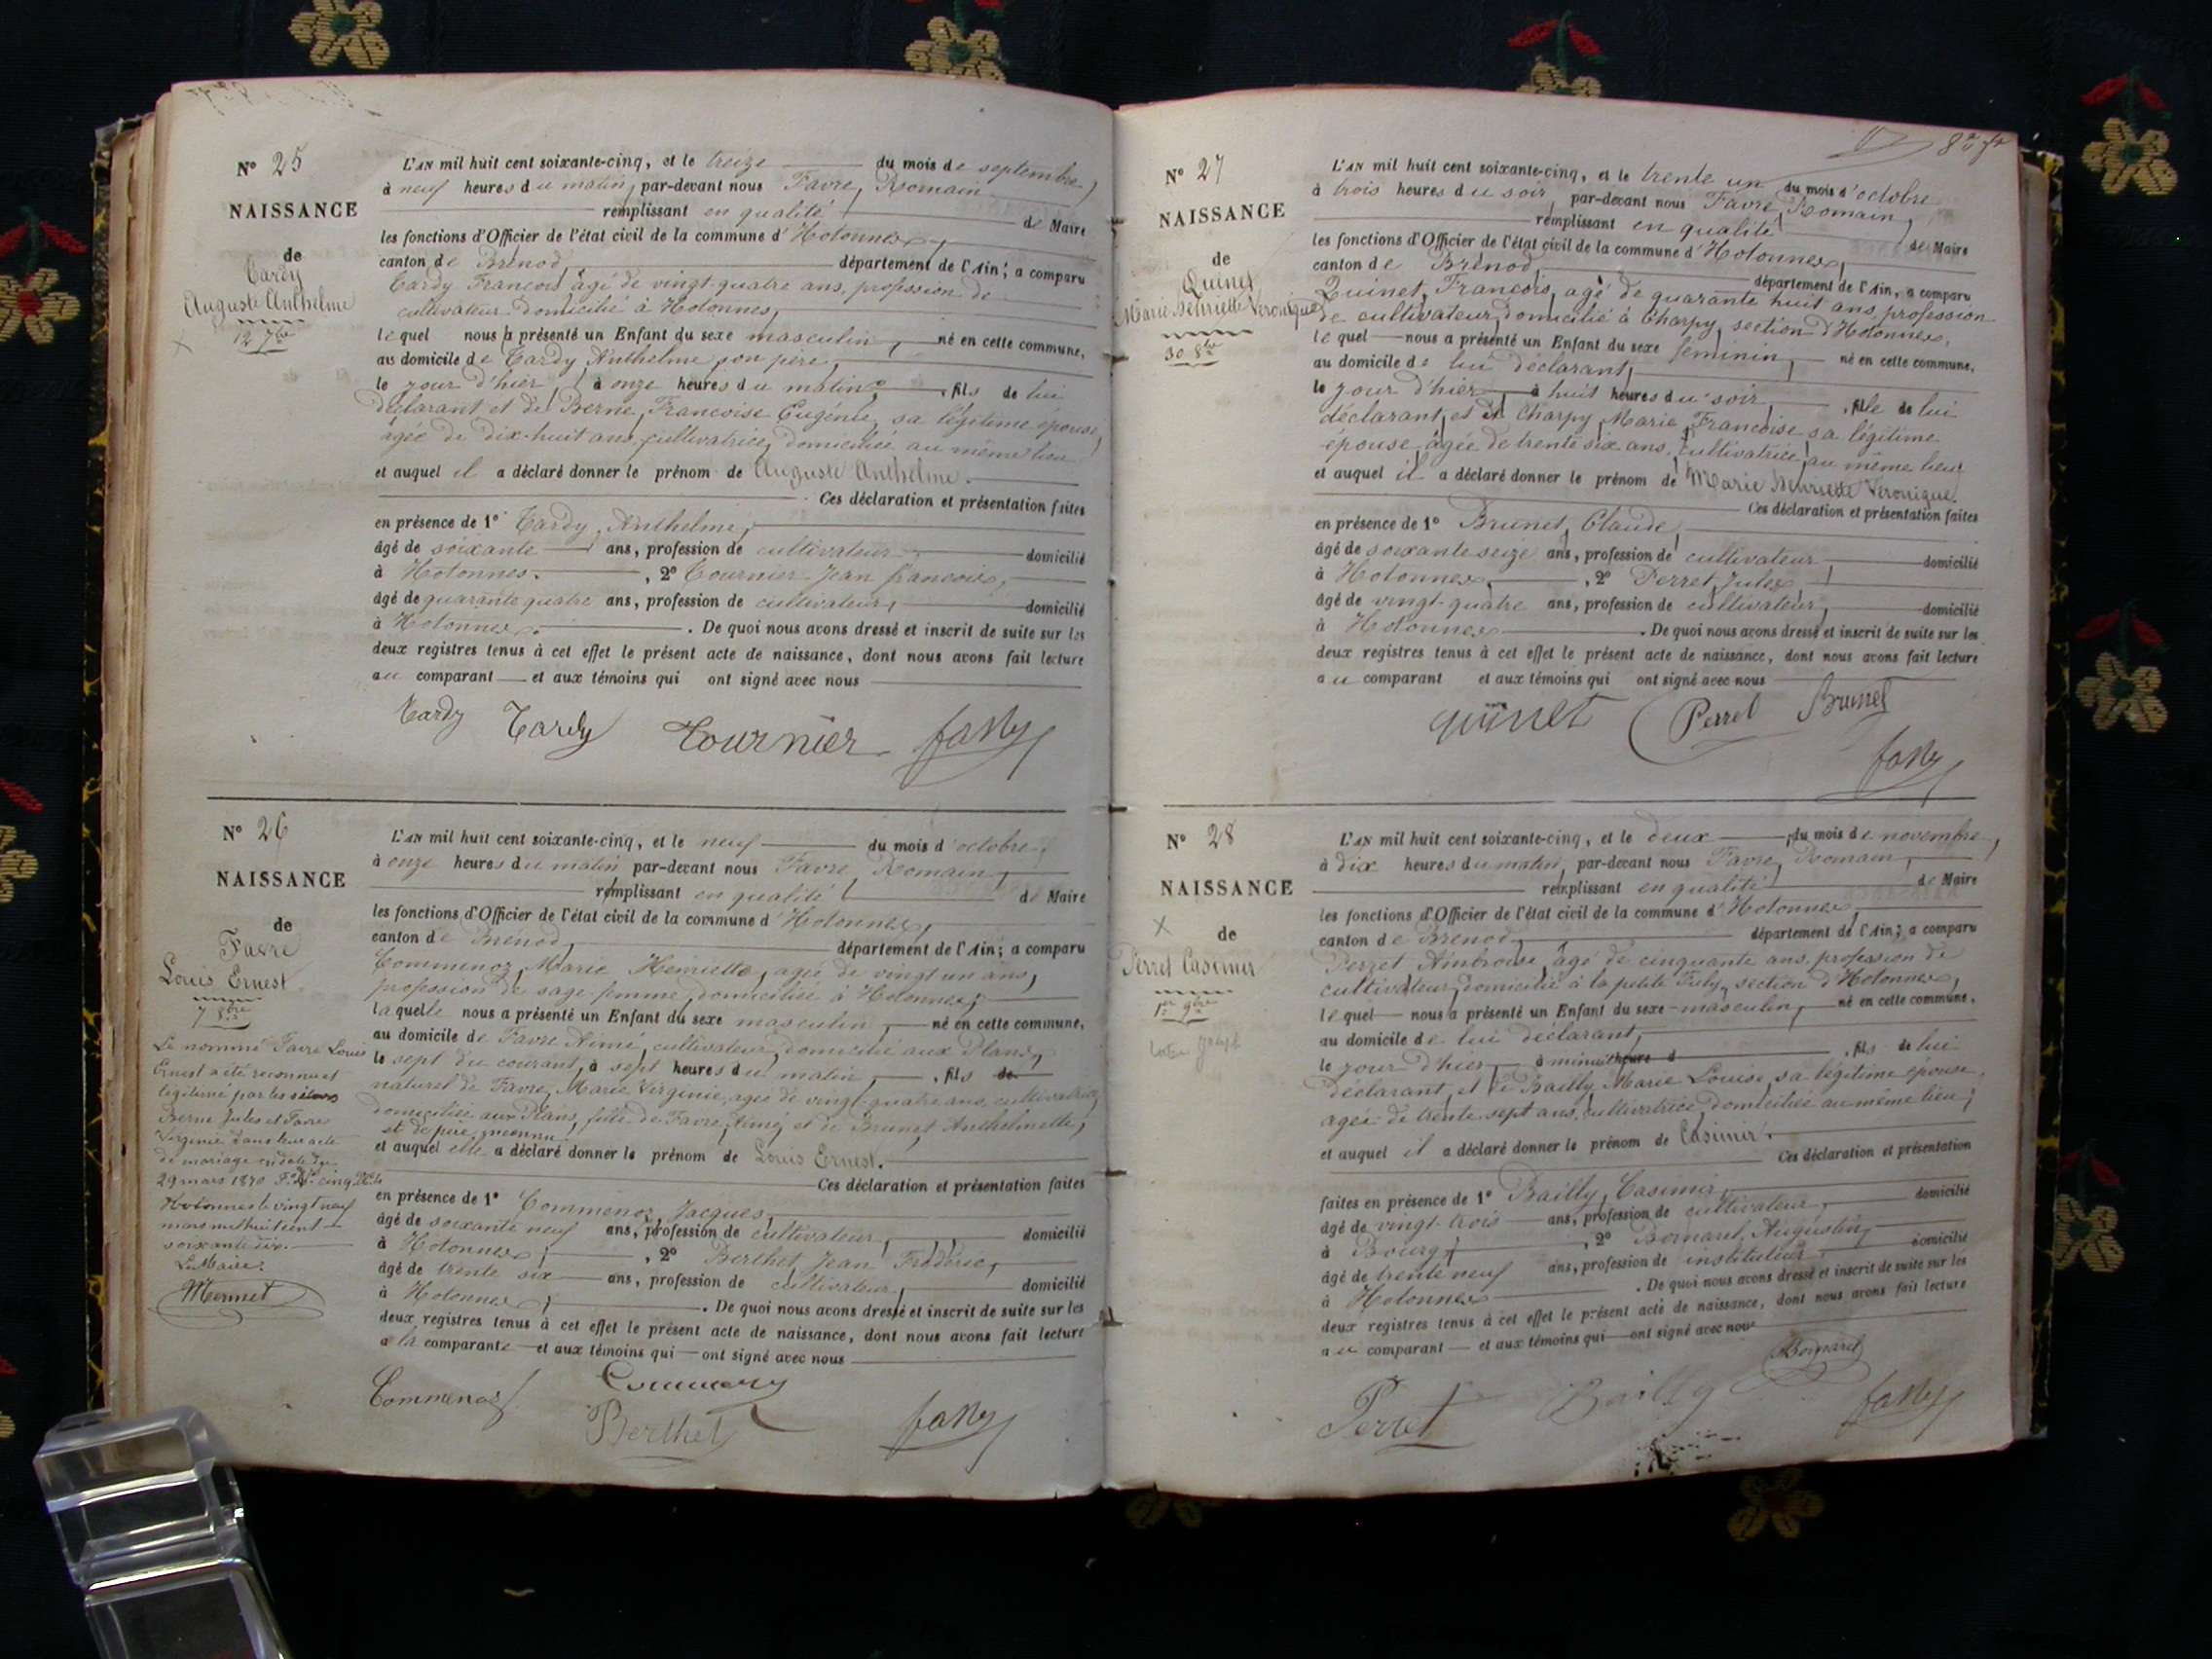 N° 25
NAISSANCE
de
Tardy
Auguste Anthelme
12 7bre
L'AN mil huit cent soixante-cinq, et le treize du mois de septembre,
à neuf heures du matin, par-devant nous Favre, Romain
remplissant en qualité de Maire
les fonctions d'Officier de l'état civil de la commune d'Hotonnes,
canton de Brénod, département de l'Ain; a comparu
Tardy François âgé de vingt-quatre ans, profession de
cultivateur domicilié à Hotonnes,
lequel nous a présenté un Enfant du sexe masculin, né en cette commune,
au domicile de Tardy, Anthelme son père,
le jour d'hier, à onze heures du matin, fils de lui
déclarant et de Berne, Françoise Eugénie, sa légitime épouse,
âgée de dix-huit ans, cultivatrice, domiciliée au même lieu
et auquel il a déclaré donner le prénom de Auguste Anthelme.
Ces déclaration et présentation faites
en présence de 1° Tardy, Anthelme,
âgé de soixante ans, profession de cultivateur, domicilié
à Hotonnes, 2° Tournier Jean françois,
âgé de quarante quatre ans, profession de cultivateur, domicilié
à Hotonnes. De quoi nous avons dressé et inscrit de suite sur les
deux registres tenus à cet effet le présent acte de naissance, dont nous avons fait lecture
au comparant et aux témoins qui ont signé avec nous
Tardy Tardy Tournier
N° 26
NAISSANCE
de
Favre
Louis Ernest
7 8bre
Le nommé Favre Louis
Ernest a été reconnu et
légitimé par les
Berne Jules et Favre
Virginie dans leur acte
de mariage en date du
29 mars 1870
Hotonnes le vingt neuf
mars mil huit cent
soixante dix.
Le Maire.
Mermet
L'AN mil huit cent soixante-cinq, et le neuf du mois d'octobre,
à onze heures du matin par-devant nous Favre, Romain,
remplissant en qualité de Maire
les fonctions d'Officier de l'état civil de la commune d'Hotonnes,
canton de Brénod, département de l'Ain; a comparu
Commenoz, Marie Henriette, agée de vingt un ans,
profession de sage-femme, domiciliée à Hotonnes,
laquelle nous a présenté un Enfant du sexe masculin, né en cette commune,
au domicile de Favre Aimé, cultivateur, domicilié aux Plans,
le sept du courant, à sept heures du matin, fils de
naturel de Favre, Marie Virginie, agée de vingt-quatre ans, cultivatrice,
domiciliée aux Plans, fille de Favre, Aimé, et de Brunet Anthelmette,
et de père inconnu
et auquel elle a déclaré donner le prénom de Louis Ernest.
Ces déclaration et présentation faites
en présence de 1° Commenoz, Jacques,
âgé de soixante neuf ans, profession de cultivateur, domicilié
à Hotonnes, 2° Berthet, Jean Frédéric,
âgé de trente six ans, profession de cultivateur, domicilié
à Hotonnes, De quoi nous avons dressé et inscrit de suite sur les
deux registres tenus à cet effet le présent acte de naissance, dont nous avons fait lecture
a la comparante et aux témoins qui ont signé avec nous
Commenoz
Berthet
N° 27
NAISSANCE
de
Quinet
Marie Henriette Veronique
30 8bre
L'AN mil huit cent soixante-cinq, et le trente un du mois d'octobre
à trois heures du soir, par-devant nous Favre, Romain,
remplissant en qualité de Maire
les fonctions d'Officier de l'état civil de la commune d'Hotonnes,
canton de Brénod, département de l'Ain, a comparu
Quinet, François, agé de quarante huit ans, profession
de cultivateur, domicilié à Charpy, section d'Hotonnes,
lequel nous a présenté un Enfant du sexe féminin, né en cette commune,
au domicile de lui déclarant,
le jour d'hier, à huit heures du soir, fille de lui
déclarant, et de Charpy, Marie Françoise sa légitime
épouse, âgée de trente six ans, cultivatrice, au même lieu
et auquel il a déclaré donner le prénom de Marie Henriette Veronique.
Ces déclaration et présentation faites
en présence de 1° Brunet, Claude,
âgé de soixante seize ans, profession de cultivateur, domicilié
à Hotonnes, 2° Perret, Jules,
âgé de vingt-quatre ans, profession de cultivateur, domicilié
à Hotonnes. De quoi nous avons dressé et inscrit de suite sur les
deux registres tenus à cet effet le présent acte de naissance, dont nous avons fait lecture
au comparant et aux témoins qui ont signé avec nous
quinet Perret Brunet
N° 28
NAISSANCE
de
Perret Casimir
1er 9bre
L'AN mil huit cent soixante-cinq, et le deux du mois de novembre,
à dix heures du matin, par-devant nous Favre, Romain,
remplissant en qualité de Maire
les fonctions d'Officier de l'état civil de la commune d'Hotonnes,
canton de Brénod, département de l'Ain; a comparu
Perret Ambroise, âgé de cinquante ans, profession de
cultivateur, domicilié à la petite section d'Hotonnes,
lequel nous a présenté un Enfant du sexe masculin, né en cette commune,
au domicile de lui déclarant,
le jour d'hier, à minuit heure d fils de lui
déclarant, et de Bailly, Marie Louise, sa légitime épouse,
agée de trente sept ans, cultivatrice, domiciliée au même lieu,
et auquel il a déclaré donner le prénom de Casimir.
Ces déclaration et présentation
faites en présence de 1° Bailly, Casimir,
âgé de vingt-trois ans, profession de cultivateur, domicilié
à Bourg, 2° Bornarel, Augustin,
âgé de trente neuf ans, profession de instituteur, domicilié
à Hotonnes. De quoi nous avons dressé et inscrit de suite sur les
deux registres tenus à cet effet le présent acte de naissance, dont nous avons fait lecture
au comparant et aux témoins qui ont signé avec nous
Bornarel
Perret Bailly